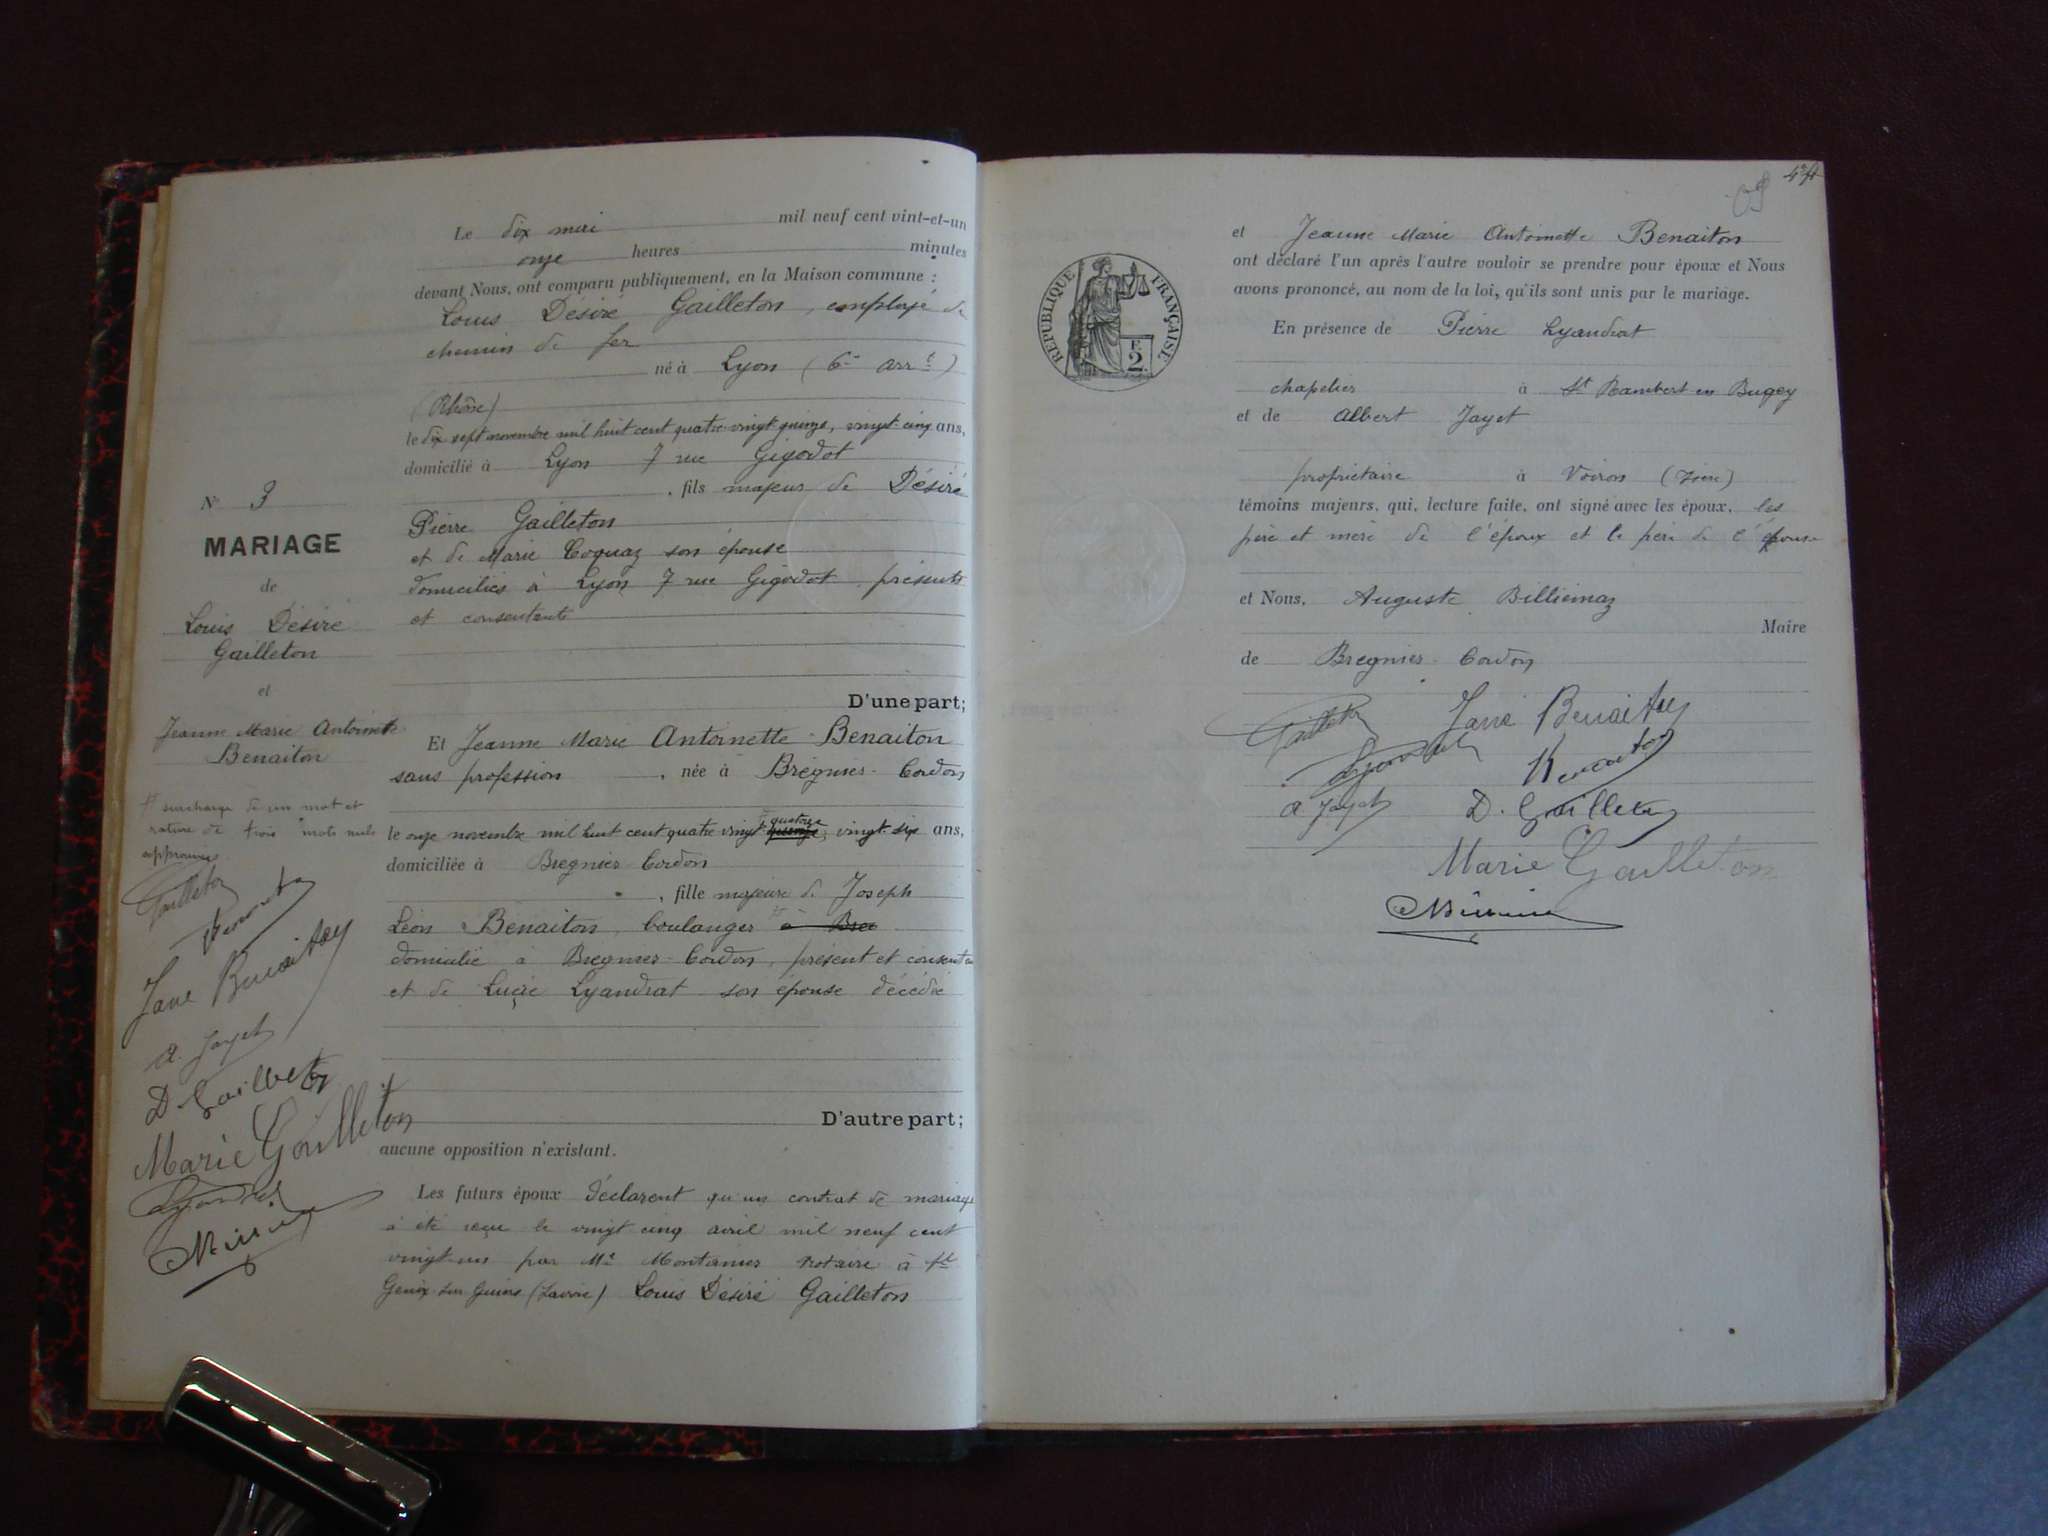 Le dix mai mil neuf cent vint-et-un
onze heures minutes
devant Nous, ont comparu publiquement, en la Maison commune :
Louis Désiré Gailleton, employé de
chemin de fer
né à Lyon (6e arrt)
(Rhône)
le dix sept novembre mil huit cent quatre vingt quinze, vingt cinq ans,
domicilié à Lyon 7 rue Gigodot
, fils majeur de Désiré
Pierre Gailleton
et de Marie Coquaz son épouse
domiciliés à Lyon 7 rue Gigodot, présents
et consentants
D'une part;
N° 3
MARIAGE
de
Louis Désiré
Gailleton
et
Jeanne Marie Antoinette
Benaiton
surcharge de un mot et
rature de trois mots nuls
approuvés
Gailleton
Benaiton
Jane Benaiton
A. Jayet
D. Gailleton
Marie Gailleton
Lyandrat
Et Jeanne Marie Antoinette Benaiton
sans profession, née à Brégnier-Cordon
le onze novembre mil huit cent quatre vingt quatorze quinze, vingt six ans,
domiciliée à Bregnier-Cordon
, fille majeure de Joseph
Léon Benaiton, boulanger à Bre
domicilié à Bregnier-Cordon, présent et consentant
et de Lucie Lyandrat son épouse décédée
D'autre part;
aucune opposition n'existant.
Les futurs époux déclarent qu'un contrat de mariage
à été reçu le vingt cinq avril mil neuf cent
vingt-un par Me Montanier notaire à St
Genix sur Guiers (Savoie) Louis Désiré Gailleton
et Jeanne Marie Antoinette Benaiton
ont déclaré l'un après l'autre vouloir se prendre pour époux et Nous
avons prononcé, au nom de la loi, qu'ils sont unis par le mariage.
RÉPUBLIQUE FRANÇAISE
F.
2
En présence de Pierre Lyandrat
chapelier à St Rambert en Bugey
et de Albert Jayet
propriétaire à Voiron (Isère)
témoins majeurs, qui, lecture faite, ont signé avec les époux, les
père et mère de l'époux et le père de l'épouse
et Nous, Auguste Billiemaz
Maire
de Bregnier-Cordon
Gailleton Jane Benaiton
Lyandrat Benaiton
A. Jayet D. Gailleton
Marie Gailleton